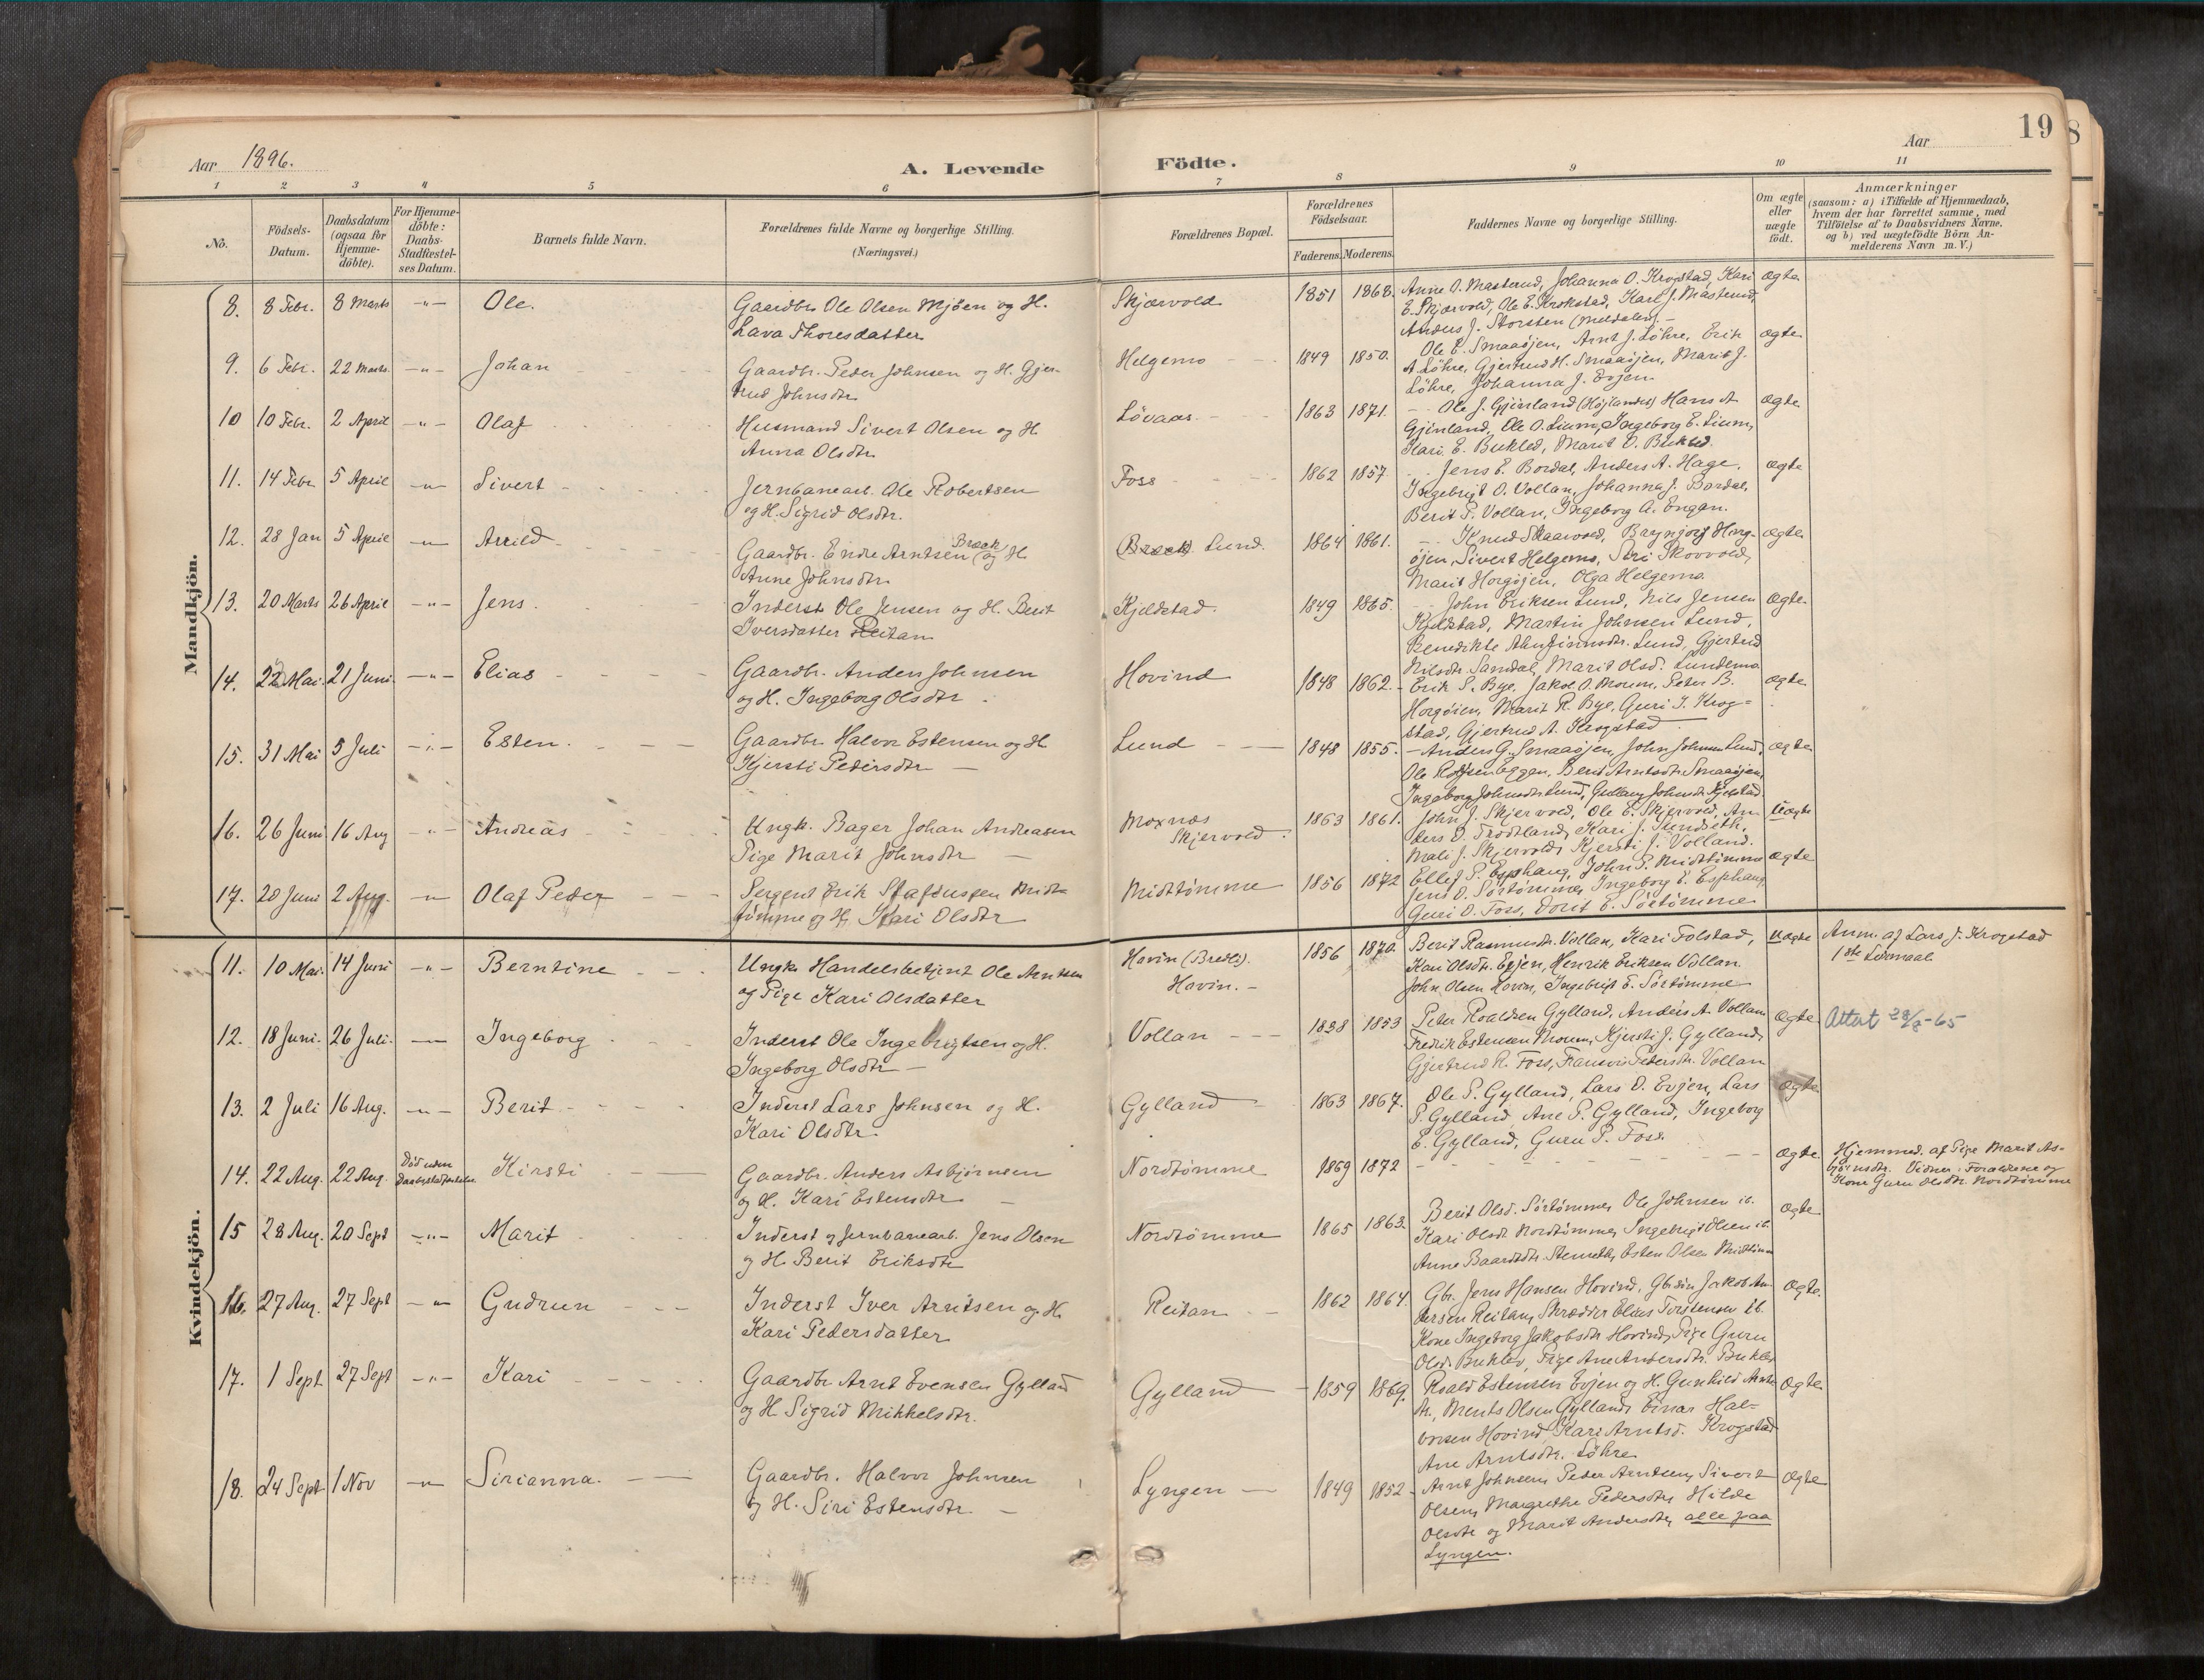 19
Aar 1896.
A. Levende Födte.
Aar
1 2 3 4 5 6 7 8 9 10 11
No.
Födsels-Datum.
Daabsdatum (ogsaa for Hjemme-döbte).
For Hjemme-döbte: Daabs-Stadfæstel-ses Datum.
Barnets fulde Navn.
Forældrenes fulde Navne og borgerlige Stilling. (Næringsvei.)
Forældrenes Bopæl.
Forældrenes Födselsaar.
Faderens. Moderens.
Faddernes Navne og borgerlige Stilling.
Om ægte eller uægte födt.
Anmærkninger
(saasom: a) i Tilfælde af Hjemmedaab,
hvem der har forrettet samme, med
Tilföielse af to Daabsvidners Navne.
og b) ved uægtefödte Börn An-
melderens Navn m. V.)
Mandkjön.
8. 8 Febr. 8 Marts -"- Ole.
Gaardbr. Ole Olsen Mjöen og H.
Lava Thoresdatter
Skjærvold 1851 1868.
Anne O. Mastrud, Johanna O. Krogstad, Kari
E. Skjærvold, Ole E. Krokstad, Kari J. Mastrud,
Anders J. Storsten (Meldalen). -
Ægte
9. 6 Febr. 22 Marts -"- Johan
Gaardbr. Peder Johnsen og H. Gjer-
trud Johnsdtr.
Helgemo 1849 1850.
Ole E. Smaaøjen, Arnt J. Løhre, Erik
A. Løhre, Gjertrud H. Smaaøjen, Marit J.
Løhre, Johanna J. Evjen
Ægte
10 10 Febr. 2 April -"- Olaf
Husmand Sivert Olsen og H.
Anna Olsdtr.
Løvaas 1863 1871.
Ole J. Gjinland (Højlandet) Hans A
Gjinland, Ole O. Lium, Ingeborg E. Lium,
Kari E. Bukled, Marit O. Bukled.
Ægte
11. 14 Febr 5 April -"- Sivert
Jernbanearb. Ole Robertsen
og H. Sigrid Olsdtr.
Foss 1862 1857
Jens E. Bordal, Anders A. Hage,
Ingebrigt O. Vollan, Johanna J. Bordal,
Berit P. Vollan, Ingeborg A. Engan.
Ægte
12. 28 Jan 5 April -"- Arnild
Gaardbr. Endre Arntsen Bræk og H
Anne Johnsdtr.
(Bræk) Lund. 1864 1861.
Knud Skaarvold, Brynjolf Horg-
øjen, Sivert Helgemo, Siri Skovvold,
Marit Horgøjen, Olga Helgemo
Ægte
13. 20 Marts 26 April -"- Jens.
Inderst Ole Jensen og H. Berit
Iversdatter Reitan
Kjelstad. 1849 1865.
John Eriksen Lund, Nils Jensen
Kjelstad, Martin Johnsen Lund,
Benedikte Lund, Gjertrud
Nilsdtr. Samdal, Marit Olsd. Lundemo
Ægte
14. 22 Mai. 21 Juni -"- Elias
Gaardbr. Anders Johnsen
og H. Ingeborg Olsdtr.
Hovind 1848 1862.
Erik P. Bye, Jakob O. Moum, Peter B.
Horgøien, Marit R. Bye, Guri J. Krog-
stad, Gjertrud A. Krogstad
Ægte
15. 31 Mai 5 Juli -"- Esten.
Gaardbr. Halvor Estensen og H.
Kjersti Pedersdtr
Lund 1848 1855.
Anders G. Smaaøjen, John Johnsen Lund,
Ole Eggen, Berit Arntsdtr. Smaaøjen,
Ingeborg Johnsdtr. Lund, Gullaug Johnsdtr. Kjelstad
Ægte
16. 26 Juni 16 Aug -"- Andreas
Ungk. Bager Johan Andreasen
Pige Marit Johnsdtr
Moxnes
Skjervold 1863 1861.
John J. Skjervold, Ole E. Skjervold, An-
ders O. Frodland, Kari J. Sundseth,
Mali J. Skjervold, Kjersti J. Volland.
Uægte
17. 20 Juni 2 Aug. -"- Olaf Peder
Sergent Erik Stafdussen Midt-
tømme og H. Kari Olsdtr
Midttømme 1856 1872
Ellef P. Esphaug, John P. Midttømme
Jens O. Sørtømme, Ingeborg E. Esphaug,
Guri O. Foss, Dorit E. Sørtømme
Ægte
Kvindekjön.
11. 10 Mai. 14 Juni -"- Berntine
Ungk. Handelsbetjent Ole Arntsen
og Pige Kari Olsdatter
Hovin (Bredl).
Hovin. 1856 1870.
Berit Rasmusdtr. Vollan, Kari Folstad,
Kari Olsdtr. Evjen, Henrik Eriksen Vollan
John Olsen Hovin, Ingebrigt E. Sørtømme
Uægte
Anm. af Lars J. Krogstad
1ste Leiermaal.
12. 18 Juni. 26 Juli. -"- Ingeborg
Inderst Ole Ingebrigtsen og H.
Ingeborg Olsdtr
Vollan 1838 1853
Peter Roaldsen Gylland, Anders A. Vollan
Fredrik Estensen Moum, Kjersti J. Gylland,
Gjertrud R. Foss, Pedersdtr. Vollan
Ægte
Attest 28/8-65
13. 2 Juli 16 Aug. -"- Berit
Inderst Lars Johnsen og H.
Kari Olsdtr.
Gylland 1863 1867.
Ole P. Gylland, Lars O. Evjen, Lars
P. Gylland, Ane P. Gylland, Ingeborg
E. Gylland, Guru P. Foss.
Ægte
14. 22 Aug. 22 Aug. Död uden
Kirsti
Gaardbr. Anders Asbjørnsen
og H. Kari Estensdtr.
Nordtømme 1869 1872
Ægte
Hjemmed. af Pige Marit As-
bjørnsdtr. Vidner: Forældrene og
Kone Guru Olsdtr. Nordtømme
15 28 Aug. 20 Sept -"- Marit
Inderst og Jernbanearb. Jens Olsen
og H. Berit Eriksdtr
Nordtømme 1865 1863.
Berit Olsd. Sørtømme, Ole Johnsen ib.
Kari Olsdt. Nordtømme, Ingebrigt Olsen ib.
Anne Baardsdtr. Esten Olsen Midttømme
Ægte
16. 27 Aug. 27 Sept -"- Gudrun
Inderst Iver Arntsen og H.
Kari Pedersdatter
Reitan 1862 1864.
Gbr. Jens Hansen Hovind, Gbrsön Jakob An-
dersen Reitan, Skrædder Elias Torstensen ib.
Kone Ingeborg Jakobsdtr Hovind, Pige Guru
Olsd. Buklev, Pige Ane Andersdtr. Buklev
Ægte.
17. 1 Sept 27 Sept -"- Kari
Gaardbr Arnt Evensen Gylland
og H. Sigrid Mikkelsdtr.
Gylland 1859 1869.
Roald Estensen Evjen og H. Gunhild Arnts-
dtr., Ments Olsen Gylland, Einar Hal-
vorsen Hovind, Kari Arntsd. Krogstad
Ane Arntsdtr. Løhre
Ægte
18. 24 Sept 1 Nov -"- Sirianna.
Gaardbr. Halvor Johnsen
og H. Siri Estensdtr.
Lyngen 1849 1852
Arnt Johnsen, Peder Arntsen, Sivert
Olsen, Margrethe Pedersdtr, Hilde
Olsdtr og Marit Andersdtr, alle paa
Lyngen.
Ægte